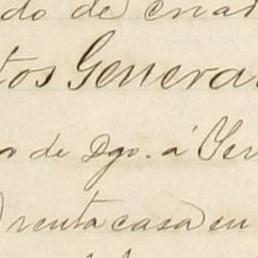 do de criad
tos Genera
o de Dgo. á Ver
renta casa en